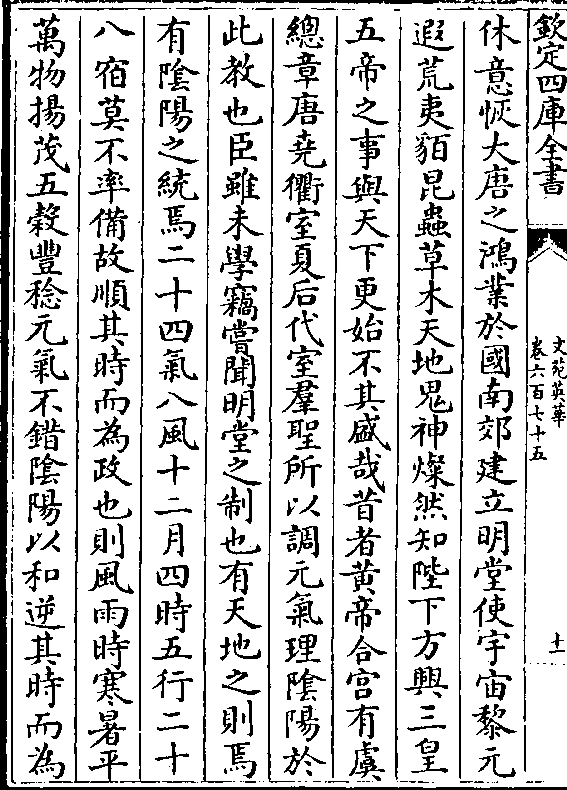 欽定四庫全書
文苑英華
卷六百七十五
十一
休意恢大唐之鴻業於國南郊建立明堂使宇宙黎元
遐荒夷貊昆蟲草木天地鬼神燦然知陛下方興三皇
五帝之事與天下更始不其盛哉昔者黃帝合宫有虞
總章唐堯衢室夏后代室羣聖所以調元氣理隂陽於
此教也臣雖未學竊嘗聞明堂之制也有天地之則焉
有隂陽之統焉二十四氣八風十二月四時五行二十
八宿莫不率備故順其時而為政也則風雨時寒暑平
萬物揚茂五榖豐稔元氣不錯隂陽以和逆其時而為